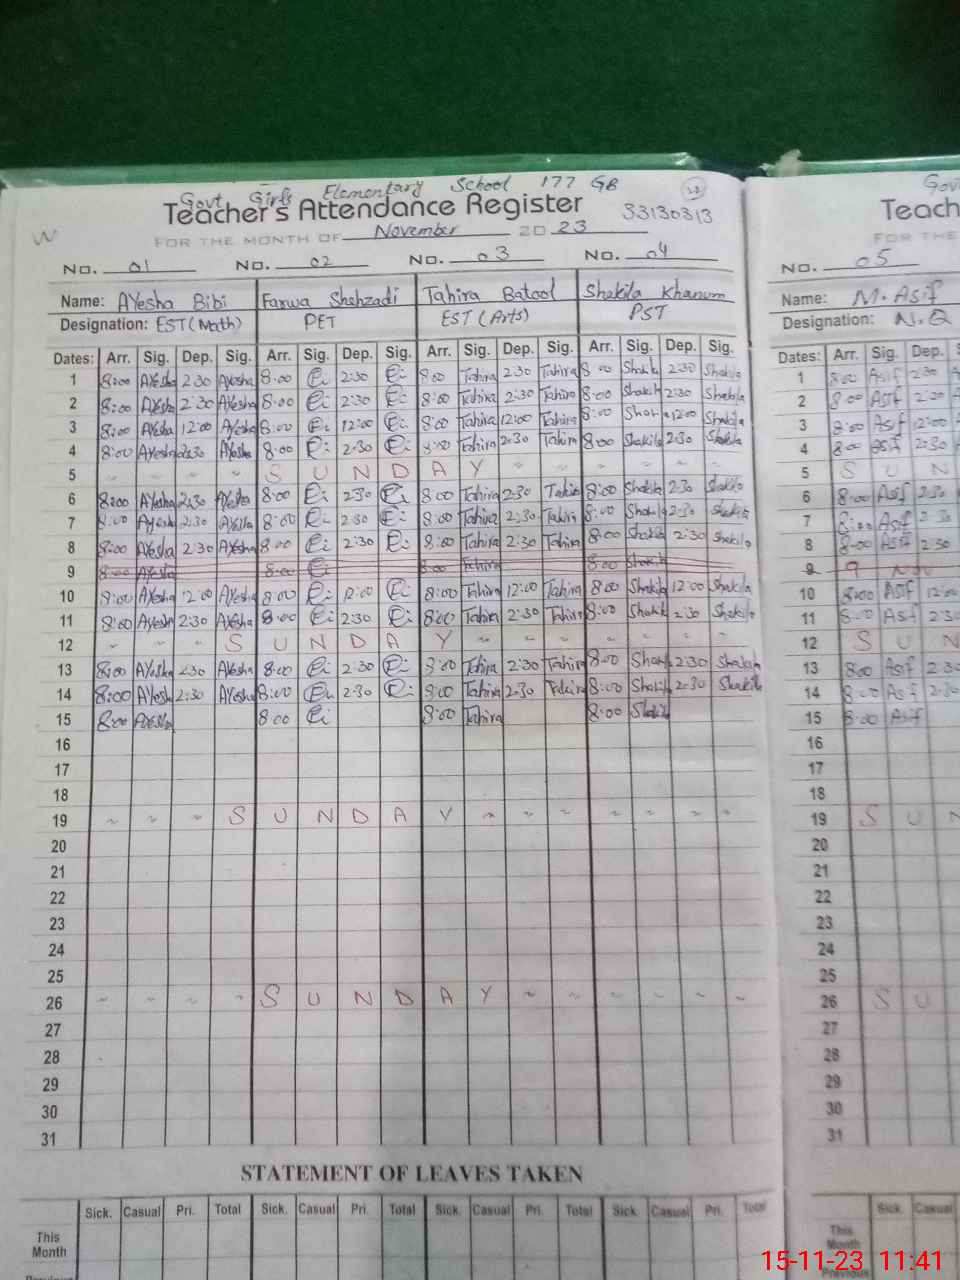 Govt Girls Elementary School 177 GB
Teacher's Attendance Register 33130313
FOR THE MONTH OF November 20 23
No. 01 No. 02 No. 03 No. 04
Name: AYesha Bibi Farwa Shahzadi Tahira Batool Shakila Khanum
Designation: EST (Math) PET EST (Arts) PST
Dates: Arr. Sig. Dep. Sig. Arr. Sig. Dep. Sig. Arr. Sig. Dep. Sig. Arr. Sig. Dep. Sig.
1 8:00 AYesha 2:30 AYesha 8:00 2:30 8:00 Tahira 2:30 Tahira 8:00 Shakila 2:30 Shakila
2 8:00 AYesha 2:30 AYesha 8:00 2:30 8:00 Tahira 2:30 Tahira 8:00 Shakila 2:30 Shakila
3 8:00 AYesha 12:00 AYesha 8:00 12:00 8:00 Tahira 12:00 Tahira 8:00 12:00 Shakila
4 8:00 AYesha 2:30 AYesha 8:00 2:30 8:00 Tahira 2:30 Tahira 8:00 Shakila 2:30 Shakila
5 S U N D A Y
6 8:00 AYesha 2:30 AYesha 8:00 2:30 8:00 Tahira 2:30 Tahira 8:00 Shakila 2:30 Shakila
7 8:00 Ayesha 2:30 AYesha 8:00 2:30 8:00 Tahira 2:30 Tahira 8:00 Shakila 2:30 Shakila
8 8:00 AYesha 2:30 AYesha 8:00 2:30 8:00 Tahira 2:30 Tahira 8:00 Shakila 2:30 Shakila
9 8:00 AYesha 8:00 8:00 Tahira 8:00 Shakila
10 8:00 AYesha 12:00 AYesha 8:00 12:00 8:00 Tahira 12:00 Tahira 8:00 Shakila 12:00 Shakila
11 8:00 AYesha 2:30 AYesha 8:00 2:30 8:00 Tahira 2:30 Tahira 8:00 Shakila 2:30 Shakila
12 S U N D A Y
13 8:00 AYesha 2:30 AYesha 8:00 2:30 8:00 Tahira 2:30 Tahira 8:00 Shakila 2:30 Shakila
14 8:00 AYesha 2:30 AYesha 8:00 2:30 8:00 Tahira 2:30 Tahira 8:00 Shakila 2:30 Shakila
15 8:00 AYesha 8:00 8:00 Tahira 8:00 Shakila
16
17
18
19 S U N D A Y
20
21
22
23
24
25
26 S U N D A Y
27
28
29
30
31
STATEMENT OF LEAVES TAKEN
Sick. Casual Pri. Total Sick. Casual Pri. Total Sick. Casual Pri. Total Sick. Casual Pri. Total
This
Month
Previous
Govt
Teach
FOR THE
No. 05
Name: M. Asif
Designation: N.Q
Dates: Arr. Sig. Dep. S
1 8:00 Asif 2:30
2 8:00 Asif 2:30
3 8:00 Asif 12:00
4 8:00 Asif 2:30
5 S U N
6 8:00 Asif 2:30
7 8:00 Asif 2:30
8 8:00 Asif 2:30
9 9
10 8:00 Asif 12:00
11 8:00 Asif 2:30
12 S U N
13 8:00 Asif 2:30
14 8:00 Asif 2:30
15 8:00 Asif
16
17
18
19 S U N
20
21
22
23
24
25
26 S U
27
28
29
30
31
Sick. Casual
This
Month
Previous
15-11-23 11:41